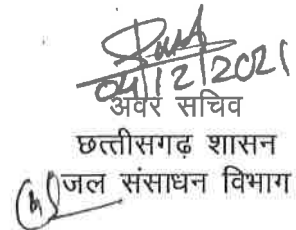 04/12/2021
अवर सचिव
छत्तीसगढ़ शासन
जल संसाधन विभाग